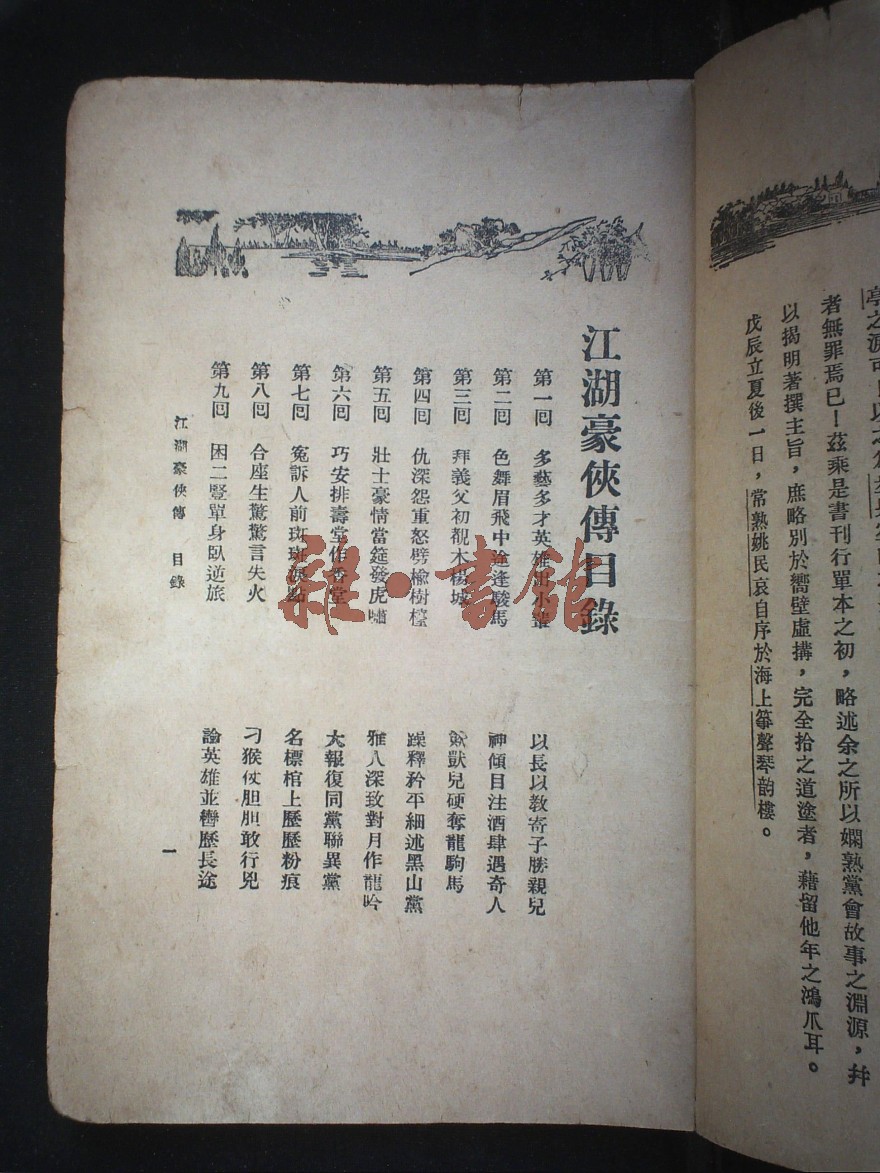 亭之源可
者無罪焉已！茲乘是書刊行單本之初，略述余之所以嫻熟黨會故事之淵源，幷
以揭明著撰主旨，庶略別於嚮壁虛搆，完全拾之道塗者，藉留他年之鴻爪耳。
戊辰立夏後一日，常熟姚民哀自序於海上箏聲琴韵樓。
江湖豪俠傳目錄
第一回 多藝多才英雄 以長以教寄子勝親兒
第二回 色舞眉飛中途逢駿馬 神傾目注酒肆遇奇人
第三回 拜義父初覩木楊城 獸兒硬奪龍駒馬
第四回 仇深怨重怒劈榆樹樁 躁釋矜平細述黑山黨
第五回 壯士豪情當筵發虎嘯 雅人深致對月作龍吟
第六回 巧安排壽堂作香堂 大報復同黨聯異黨
第七回 冤訴人前斑斑淚點 名標棺上歷歷粉痕
第八回 合座生驚驚言失火 刁猴仗胆胆敢行兇
第九回 困二豎單身臥逆旅 論英雄並轡歷長途
江湖豪俠傳 目錄
一
雜·書館